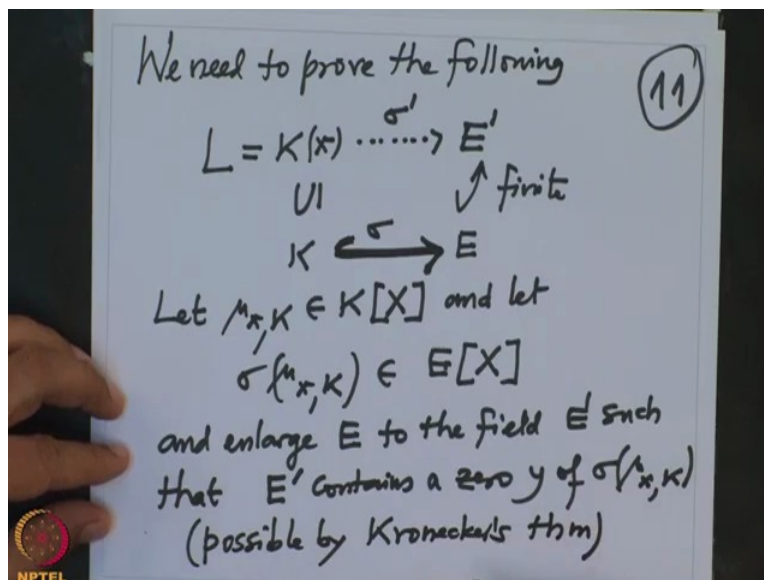 We need to prove the following
11
L = K(x) ·······> E'
σ'
UI
finite
K σ E
Let μ_{x,K} ∈ K[X] and let
σ(μ_{x,K}) ∈ E[X]
and enlarge E to the field E' such
that E' contains a zero y of σ(μ_{x,K})
(possible by Kronecker's thm)
NPTEL